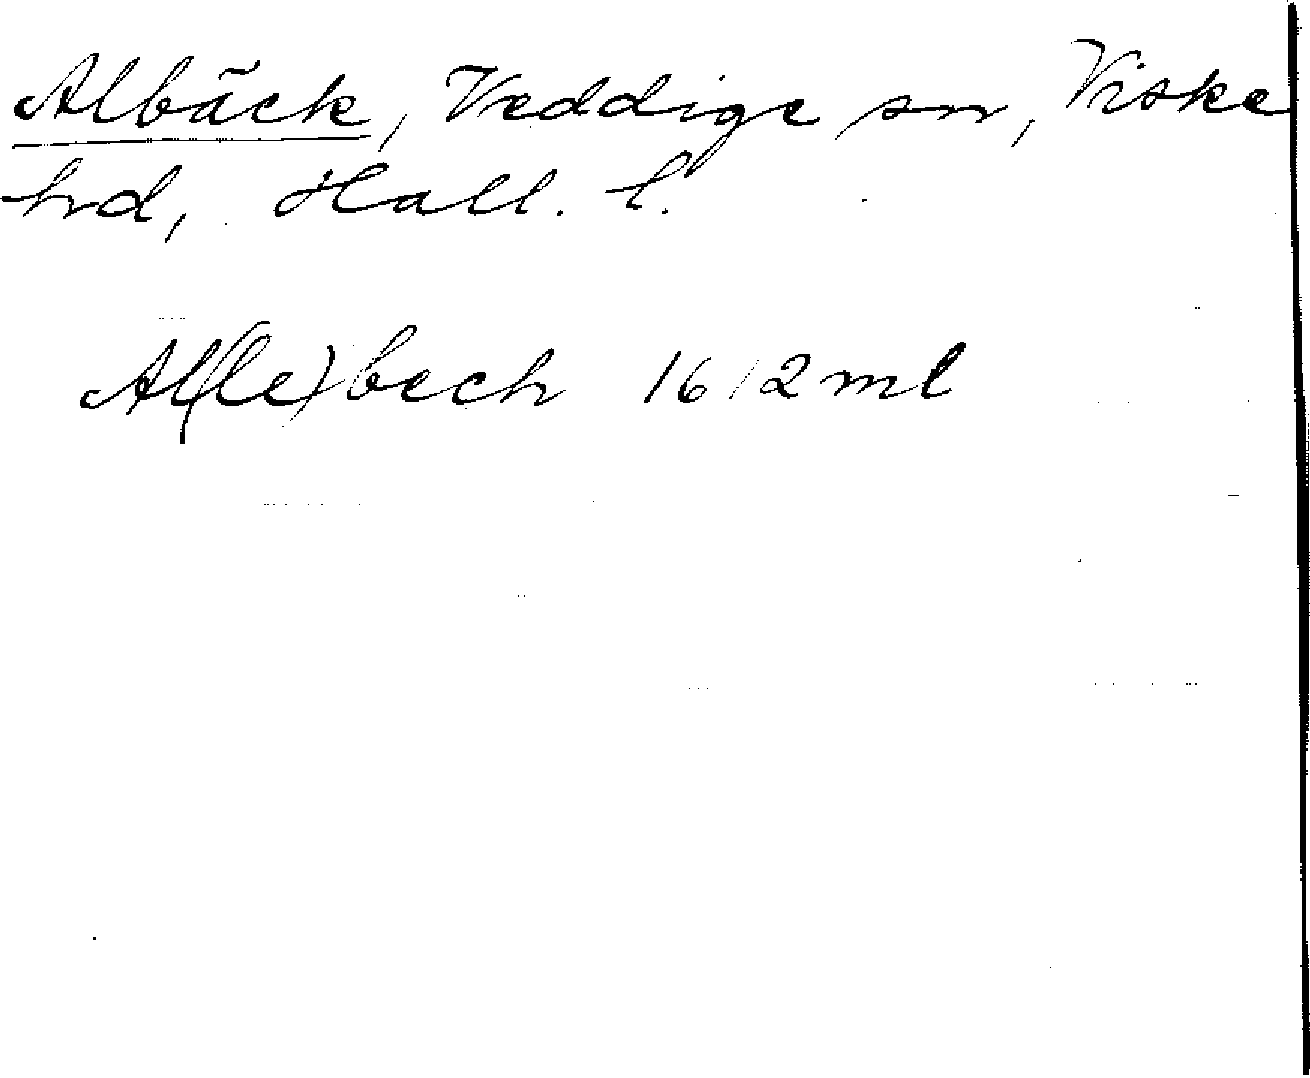 Albäck, Veddige sn, Viske
hrd, Hall. l.
Al(le)bech 1612 ml